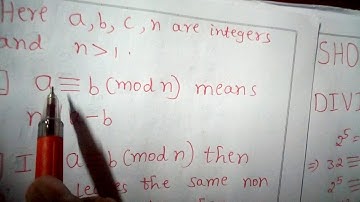 Here a, b, c, n are integers
and n>1.
] a ≡ b (mod n) means
n - b
] I a ≡ b (mod n) then
leaves the same non
SHO
DIVI
2⁵ =
⇒ 32 =
⇒ 2⁵